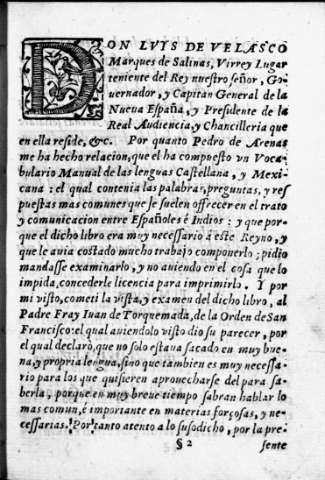 DON LVIS DE VELASCO
Marques de Salinas, Virrey Lugar
teniente del Rey nuestro señor, Go-
uernador, y Capitan General de la
Nueua España, y Presidente de la
Real Audiencia, y Chancilleria que
en ella reside, &c. Por quanto Pedro de Arenas
me ha hecho relacion, que el ha compuesto vn Voca-
bulario Manual de las lenguas Castellana, y Mexi-
cana : el qual contenia las palabras, preguntas, y res
puestas mas comunes que se suelen offrecer en el trato
y comunicacion entre Españoles è Indios : y que por-
que el dicho libro era muy necessario à este Reyno, y
que le auia costado mucho trabajo componerlo ; pidio
mandasse examinarlo, y no auiendo en el cosa que lo
impida, concederle licencia para imprimirlo. Y por
mi visto, cometi la vista, y examen del dicho libro, al
Padre Fray Iuan de Torquemada, de la Orden de San
Francisco : el qual auiendolo visto dio su parecer, por
el qual declarò, que no solo estaua sacado en muy bue-
na, y propria lengua, sino que tambien es muy necessa-
rio para los que quisieren aprouecharse del para sa-
berla, porque en muy breue tiempo sabran hablar lo
mas comun, è importante en materias forçosas, y ne-
cessarias. Por tanto atento a lo susodicho, por la pre-
§ 2 sente